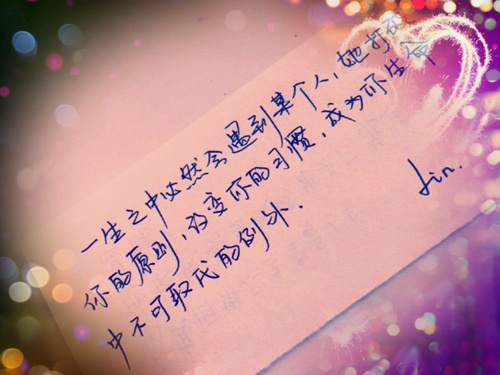 一生之中必然会遇到某个人，她打破
你的原则，改变你的习惯，成为你生命
中不可取代的例外.
Jin.